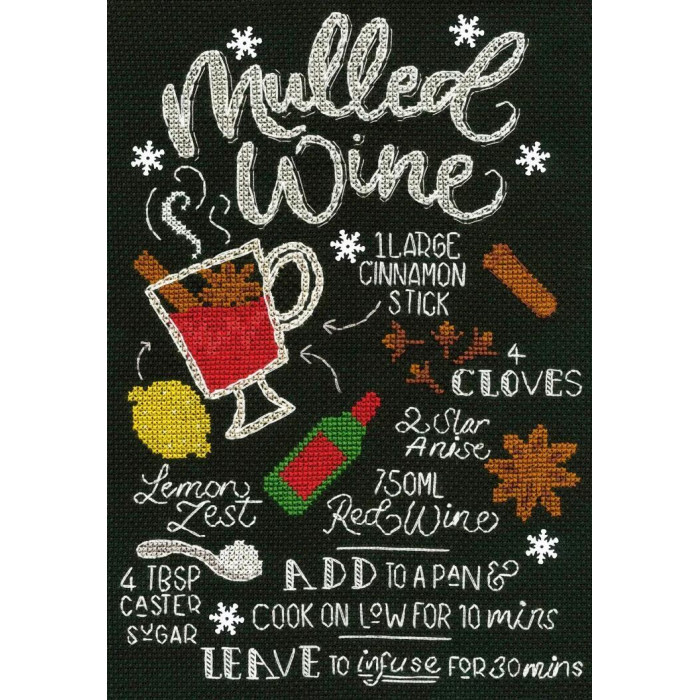 Mulled
Wine
1 LARGE
CINNAMON
STICK
4
CLOVES
2 Star
Anise
Lemon
Zest
750ML
Red Wine
4 TBSP
CASTER
SUGAR
ADD TO A PAN &
COOK ON LOW FOR 10 mins
LEAVE TO infuse FOR 30 mins